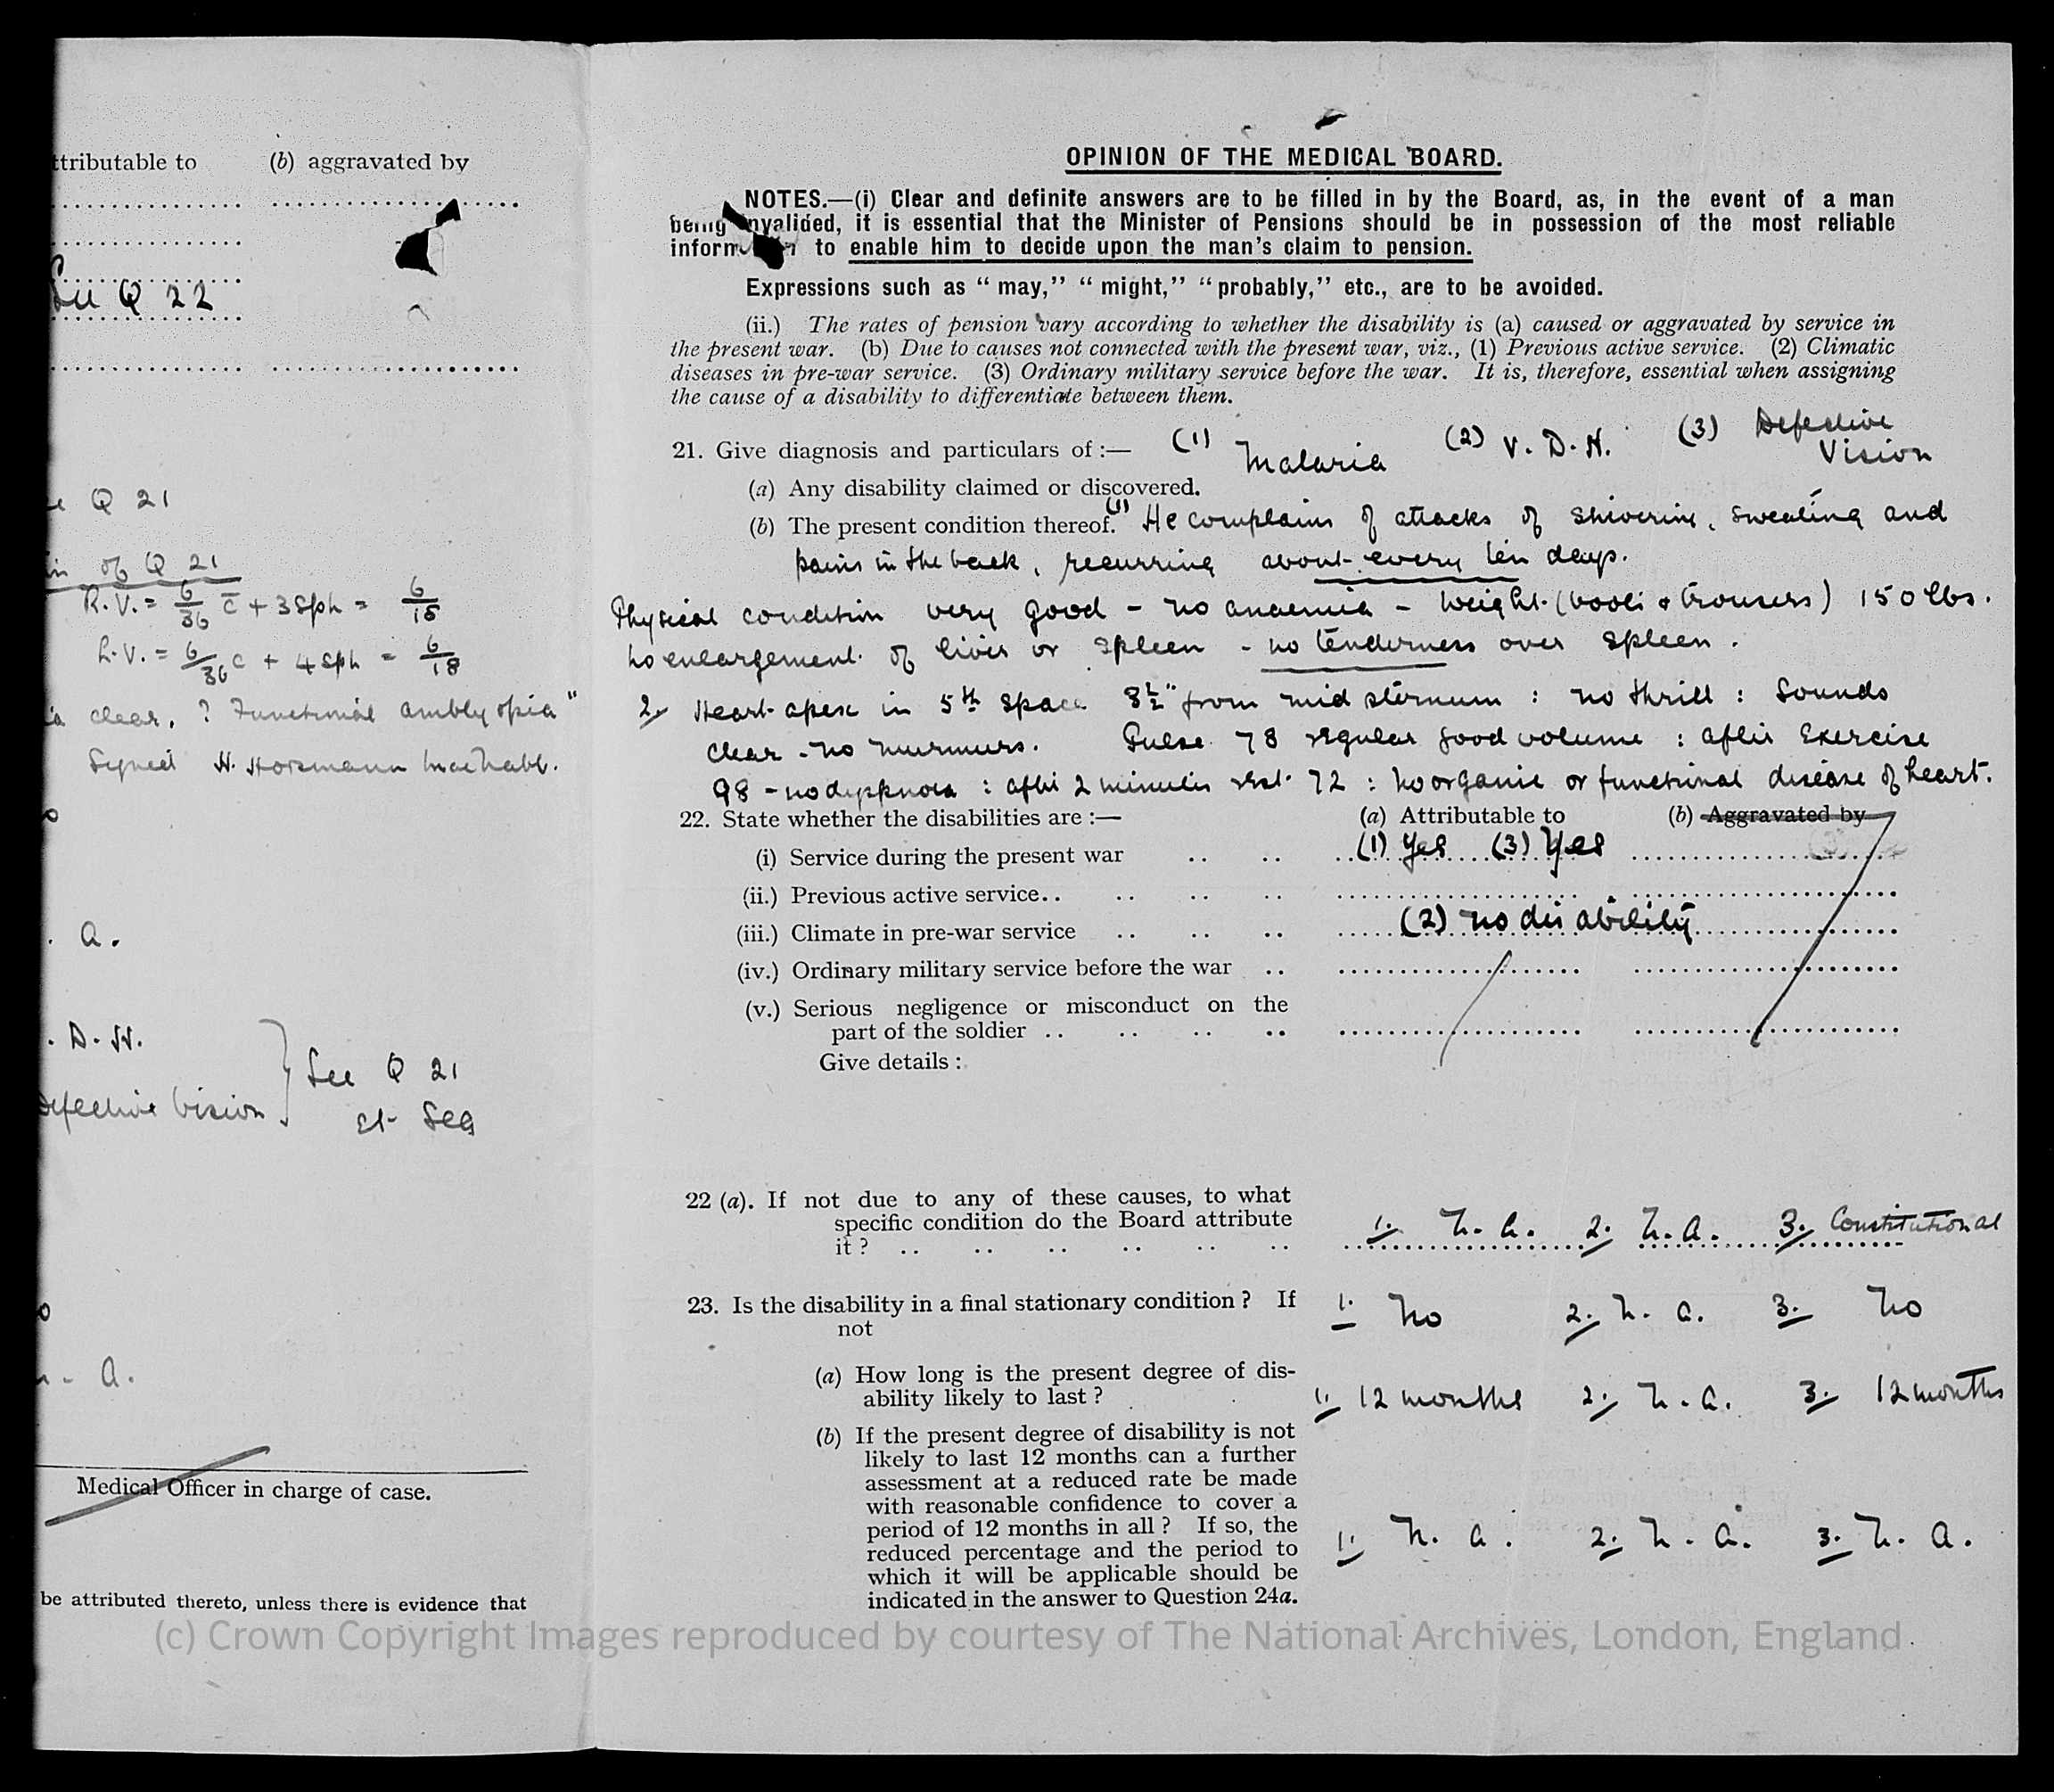 ttributable to (b) aggravated by
See Q 22
Q 21
of Q 21
R.V. = 6/36 c̄ + 3 Sph = 6/15
L.V. = 6/36 c + 4 Sph = 6/18
clear. ? Functional amblyopia"
Signed H. Horsmann
a.
. D. H.
Defective Vision } See Q 21
et Seq
a.
Medical Officer in charge of case.
be attributed thereto, unless there is evidence that
OPINION OF THE MEDICAL BOARD.
NOTES.—(i) Clear and definite answers are to be filled in by the Board, as, in the event of a man
being invalided, it is essential that the Minister of Pensions should be in possession of the most reliable
inform to enable him to decide upon the man's claim to pension.
Expressions such as "may," "might," "probably," etc., are to be avoided.
(ii.) The rates of pension vary according to whether the disability is (a) caused or aggravated by service in
the present war. (b) Due to causes not connected with the present war, viz., (1) Previous active service. (2) Climatic
diseases in pre-war service. (3) Ordinary military service before the war. It is, therefore, essential when assigning
the cause of a disability to differentiate between them.
21. Give diagnosis and particulars of :— (1) Malaria (2) V. D. H. (3) Defective
Vision
(a) Any disability claimed or discovered.
(b) The present condition thereof. (1) He complains of attacks of shivering, sweating and
pains in the back, recurring about every ten days.
Physical condition very good - no anaemia - Weight (boots & trousers) 150 lbs.
No enlargement of liver or spleen - no tenderness over spleen.
2. Heart apex in 5th space 3½" from mid sternum : no thrill : Sounds
clear - no murmurs. Pulse 78 regular good volume : after Exercise
98 - no dyspnoea : after 2 minutes rest 72 : No organic or functional disease of heart.
22. State whether the disabilities are :— (a) Attributable to (b) Aggravated by
(i) Service during the present war .. .. (1) Yes (3) Yes
(ii.) Previous active service.. .. .. ..
(iii.) Climate in pre-war service .. .. .. (2) no disability
(iv.) Ordinary military service before the war ..
(v.) Serious negligence or misconduct on the
part of the soldier .. .. .. ..
Give details :
22 (a). If not due to any of these causes, to what
specific condition do the Board attribute
it ? .. .. .. .. .. .. 1. N. A. 2. N. A. 3. Constitutional
23. Is the disability in a final stationary condition ? If 1. No 2. N. A. 3. No
not
(a) How long is the present degree of dis-
ability likely to last ? 1. 12 months 2. N. A. 3. 12 months
(b) If the present degree of disability is not
likely to last 12 months can a further
assessment at a reduced rate be made
with reasonable confidence to cover a
period of 12 months in all ? If so, the
reduced percentage and the period to 1. N. A. 2. N. A. 3. N. A.
which it will be applicable should be
indicated in the answer to Question 24a.
(c) Crown Copyright Images reproduced by courtesy of The National Archives, London, England